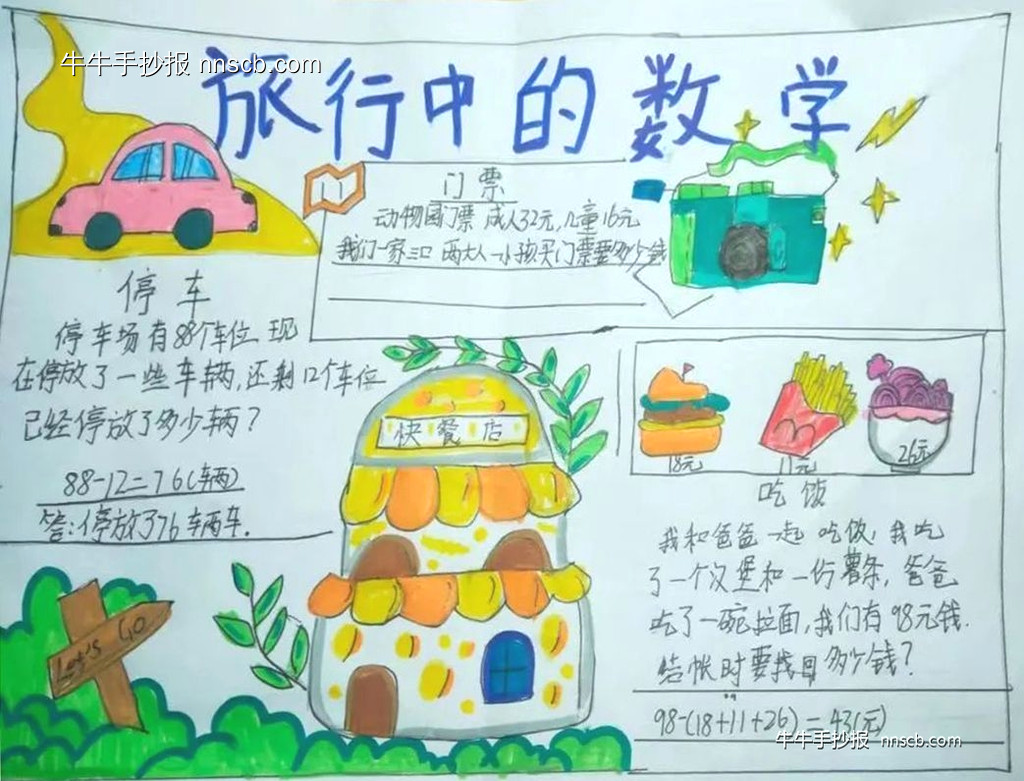 牛牛手抄报 nnscb.com
旅行中的数学
门票
动物园门票 成人32元,儿童16元
我们一家三口 两大人一小孩买门票要多少钱
停车
停车场有88个车位 现
在停放了一些车辆,还剩12个车位
已经停放了多少辆?
88-12=76(辆)
答:停放了76辆车.
快餐店
18元
11元
26元
吃饭
我和爸爸一起吃饭,我吃
了一个汉堡和一份薯条,爸爸
吃了一碗拉面,我们有98元钱.
结帐时要找回多少钱?
98-(18+11+26)=43(元)
Let's GO
牛牛手抄报 nnscb.com